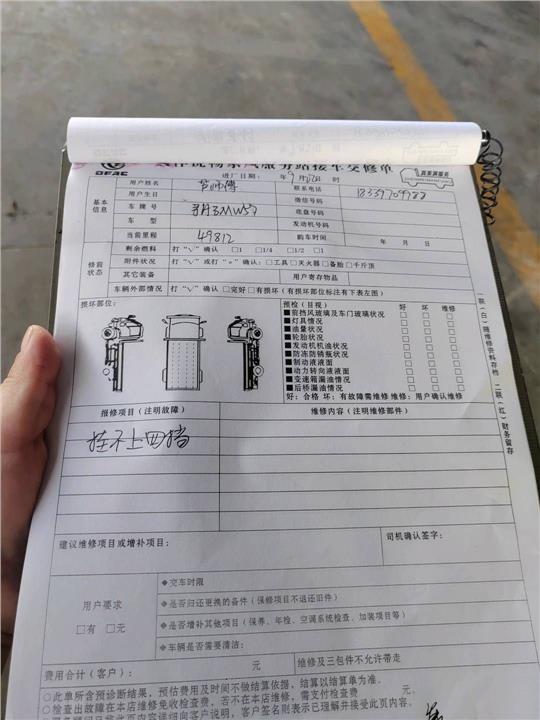 DFAC
真来真服务
进厂日期: 年9月 日 时
用户姓名 师傅 联系电话 18339709988
用户生日 微信号码
基本信息
车牌号 底盘号码
车型 发动机号码
当前里程 49812 购车时间 年 月 日
修前状态
剩余燃料 打"√"确认 □1 □1/4 □1/2 □1
附件状况 打"√"或打"×"确认:□工具□灭火器□备胎□千斤顶
其它装备 用户寄存物品
车辆外部情况 打"√"确认 □完好□有损坏(有损坏部位标注有下表左图)
损坏部位:
预检(目视) 好 坏 维修
■前挡风玻璃及车门玻璃状况 □ □ □
■灯具情况 □ □ □
■油量状况 □ □ □
■轮胎状况 □ □ □
■发动机机油状况 □ □ □
■防冻防锈瓶状况 □ □ □
■制动液液面 □ □ □
■动力转向液液面 □ □ □
■变速箱漏油情况 □ □ □
■后桥漏油情况 □ □ □
好:合格 坏:有故障需维修 维修:用户确认维修
一联(白)随维修资料存档 二联(红)财务留存
报修项目(注明故障) 维修内容(注明维修部件)
挂不上四挡
建议维修项目或增补项目: 司机确认签字:
用户要求
□有 □无
◆交车时限
◆是否归还更换的备件(保修项目不退还旧件)
◆是否增补其他项目(保养、年检、空调系统检查、加装项目等)
◆车辆是否需要清洁:
费用合计(客户): 元 维修及三包件不允许带走
○此单所含预诊断结果,预估费用及时间不做结算依据,结算以结算单为准。
○检查出故障在本店维修免收检查费,若不在本店维修,需支付检查费 元。